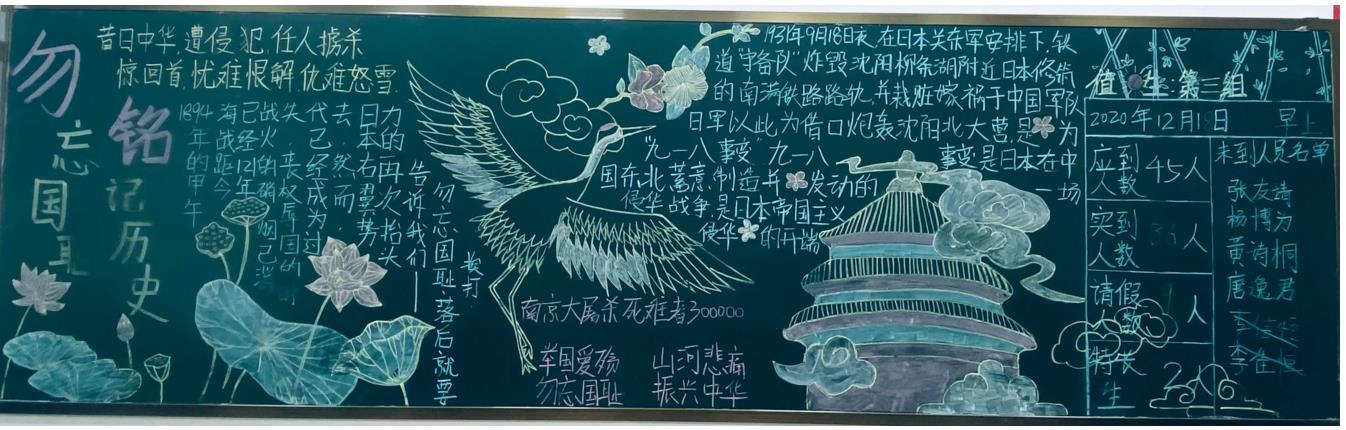 勿忘国耻
铭记历史
昔日中华,遭侵犯,任人掳杀
惊回首,忧难恨解,仇难怒雪.
1894年的甲午
海战距今
已经121年
战火的硝烟已
失、丧权辱国的
代已经成为过
去,然而,
日本右翼势
力的再次抬头
告诉我们——
勿忘国耻,落后就要
挨打
1931年9月18日夜,在日本关东军安排下,铁
道"守备队"炸毁沈阳柳条湖附近日本修筑
的南满铁路路轨,并栽赃嫁祸于中国军队
日军以此为借口炮轰沈阳北大营,是为
"九一八事变"九一八
事变是日本在中
国东北蓄意制造并发动的
一场
侵华战争,是日本帝国主义
侵华的开端
南京大屠杀死难者300000
举国爱殇 山河悲痛
勿忘国耻 振兴中华
值 生:第三组
2020年12月1 日 早上
应到人数 45人
实到人数 人
请假人数 人
特长生
未到人员名单
张友靖
杨博为
黄诗桐
唐逸君